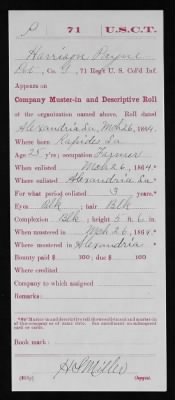 P 71 U.S.C.T.
Harrison Payne
Co. G, 71 Reg't U. S. Col'd Inf.
Appears on
Company Muster-in and Descriptive Roll
of the organization named above. Roll dated
Alexandria La, Mch 26, 1864.
Where born Rapides La
Age 25 y'rs; occupation Farmer
When enlisted Mch 26, 1864.*
Where enlisted Alexandria La.
For what period enlisted 3 years.*
Eyes Blk; hair Blk
Complexion Blk; height 5 ft. 6 in.
When mustered in Mch 26, 1864.*
Where mustered in Alexandria
Bounty paid $ 100; due $ 100
Where credited
Company to which assigned
Remarks:
Book mark:
H S Miller
Copyist.